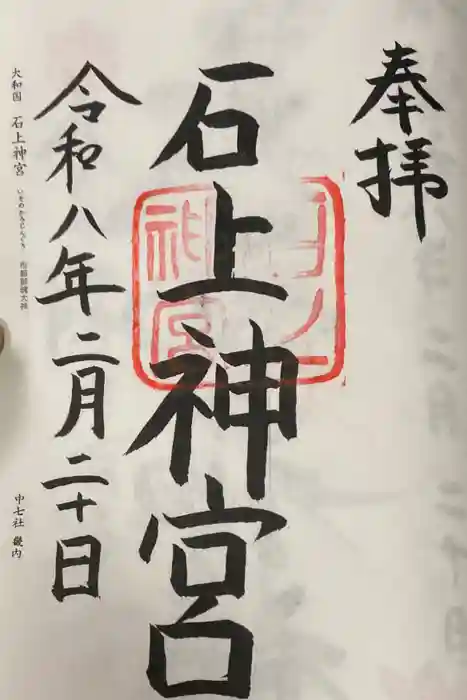 奉拝
石上神宮
令和八年二月二十日
大和国 石上神宮 いそのかみじんぐう 布都御魂大神
中七社 畿内
石上
神宮